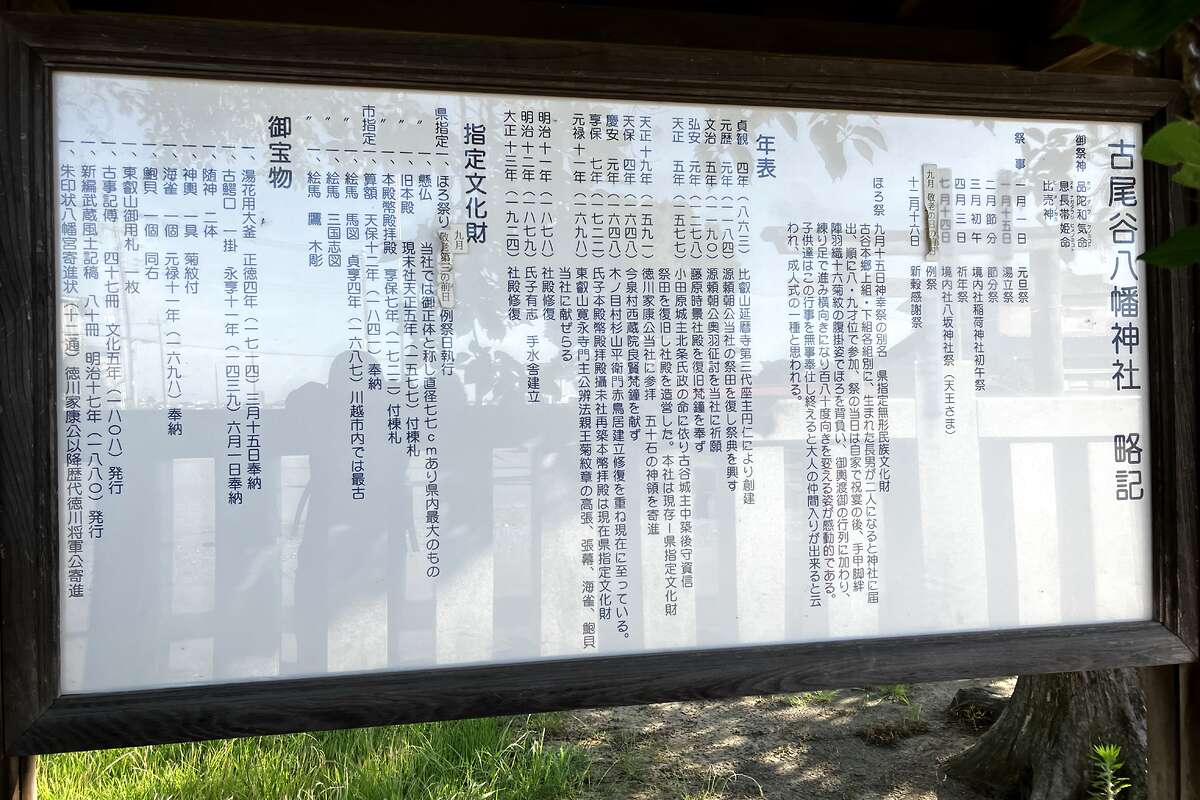 古尾谷八幡神社 略記
御祭神 品陀和気命
息長帯姫命
比売神
祭事 一月一日 元旦祭
一月十五日 湯立祭
二月節分 節分祭
三月初午 境内社稲荷神社初午祭
四月三日 祈年祭
七月十四日 境内社八坂神社祭(天王さま)
九月 敬老の日の前日 例祭
十二月十六日 新穀感謝祭
ほろ祭 九月十五日神幸祭の別名 県指定無形民族文化財
古谷本郷上組・下組各組別に、生まれた長男が二人になると神社に届
出、順に八・九才位で参加、祭の当日は自家で祝宴の後、手甲脚絆
陣羽織十六菊紋の腹掛姿でほろを背負い、御輿渡御の行列に加わり、
練り足で進み横向きになり百八十度向きを変える姿が感動的である。
子供達はこの行事を無事奉仕し終えると大人の仲間入りが出来ると云
われ、成人式の一種と思われる。
年表
貞観 四年(八六三) 比叡山延暦寺第三代座主円仁により創建
元歴 元年(一一八四)源頼朝公当社の祭田を復し祭典を興す
文治 五年(一一九〇)源頼朝公奥羽征討を当社に祈願
弘安 元年(一二七八)藤原時景社殿を復旧梵鐘を奉ず
天正 五年(一五七七)小田原城主北条氏政の命に依り古谷城主中築後守資信
祭田を復旧し社殿を造営した。本社は現存－県指定文化財
天正十九年(一五九一)徳川家康公当社に参拝 五十石の神領を寄進
天保 四年(一六四八)今泉村西蔵院良賢梵鐘を献ず
慶安 元年(一六四八)木ノ目村杉山平衛門赤鳥居建立修復を重ね現在に至っている。
享保 七年(一七二二)氏子本殿幣殿拝殿攝末社再築本幣拝殿は現在県指定文化財
元禄十一年(一六九八)東叡山寛永寺門主公辨法親王菊紋章の高張、張幕、海雀、鮑貝
当社に献ぜらる
明治十一年(一八七八)社殿修復
明治十二年(一八七九)氏子有志 手水舎建立
大正十三年(一九二四)社殿修復
指定文化財
県指定 一、ほろ祭り 九月 敬老第二の前日 例祭日執行
〃 一、懸仏 当社では御正体と称し直径七七cmあり県内最大のもの
〃 一、旧本殿 現末社天正五年(一五七七)付棟札
〃 一、本殿幣殿拝殿 享保七年(一七二二)付棟札
市指定 一、算額 天保十二年(一八四一)奉納
〃 一、絵馬 馬図 貞享四年(一六八七)川越市内では最古
〃 一、絵馬 三国志図
〃 一、絵馬 鷹 木彫
御宝物
一、湯花用大釜 正徳四年(一七一四)三月十五日奉納
一、古鰐口 一掛 永享十一年(一四三九)六月一日奉納
一、随神 二体
一、神輿 一具 菊紋付
一、海雀 一個 元禄十一年(一六九八)奉納
一、鮑貝 一個 同右
一、東叡山御用札 一枚
一、古事記傳 四十七冊 文化五年(一八〇八)発行
一、新編武蔵風土記稿 八十冊 明治十七年(一八八〇)発行
一、朱印状八幡宮寄進状(十二通)徳川家康公以降歴代徳川将軍公寄進